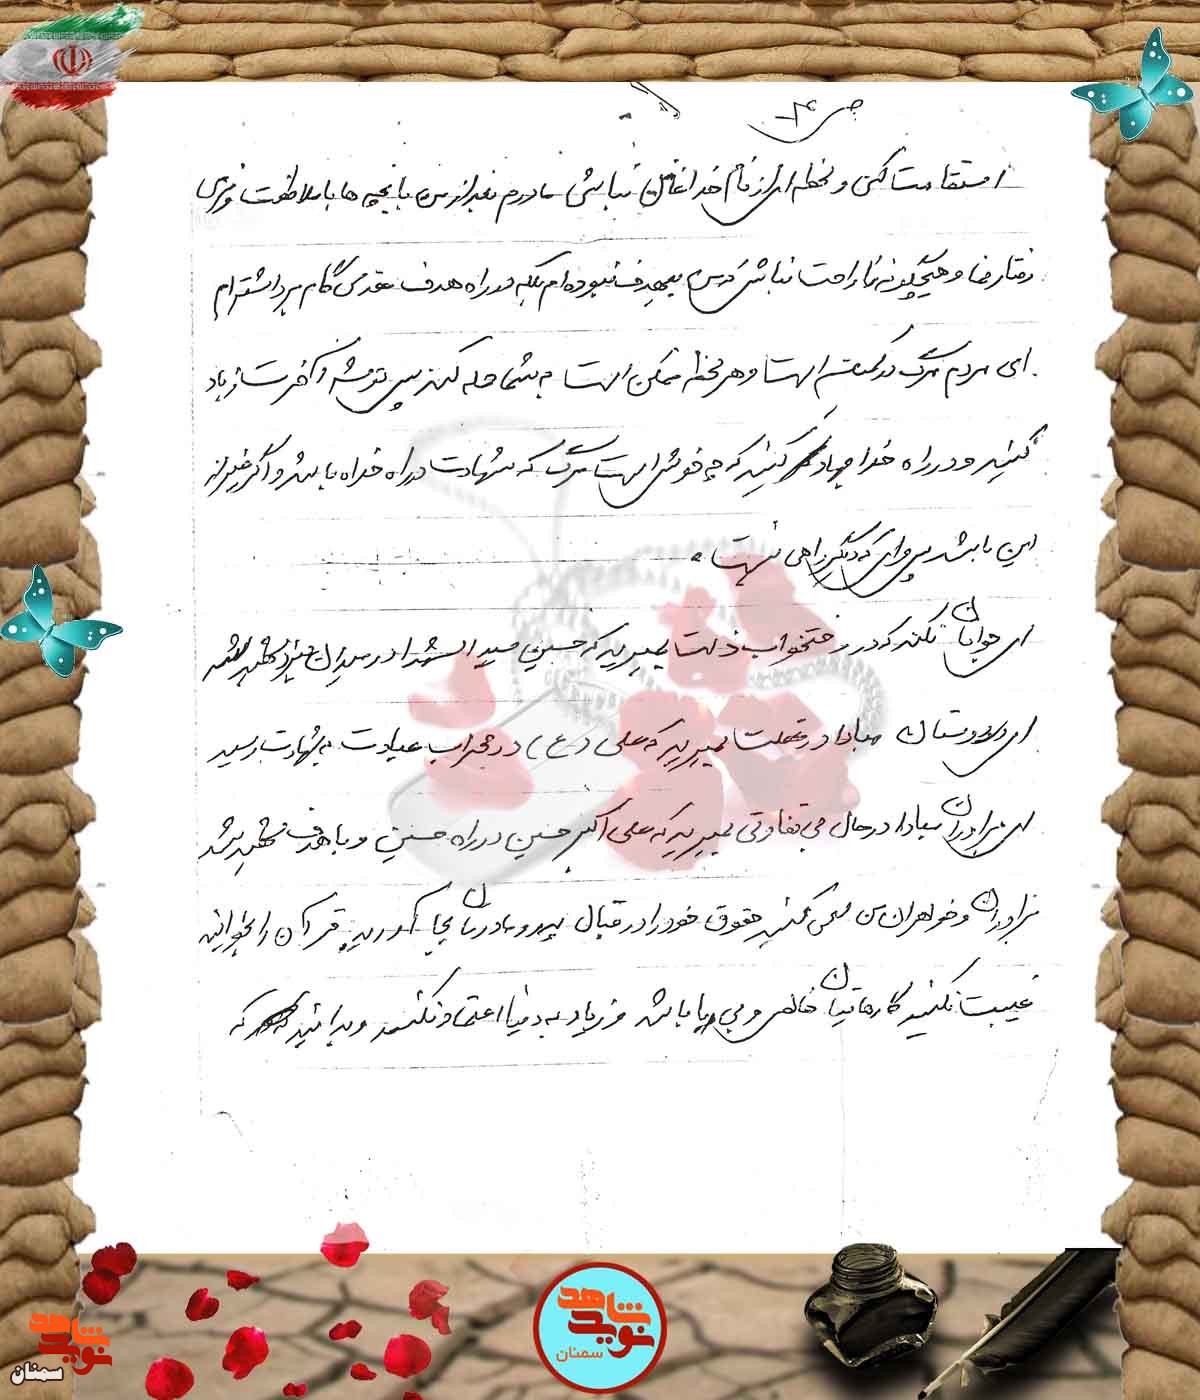 ص ۴
استقامت کن و لحظه ای از نام خدا غافل نباش مادرم بعد از من با بچه ها با ملاطفت و نرمی
رفتار نما و هیچگونه ناراحت نباش من بیهدف نبوده ام بلکه در راه هدف مقدس گام برداشته ام
ای مردم مرگ در کمین است و هر لحظه ممکن است به شما حمله کند پس توشه آخرت زیاد
کنید و در راه خدا جهاد کنید که چه خوش است مرگ که شهادت در راه خدا باشد و اگر غیر از
این باشد پس وای که دیگر راهی نیست .
ای جوانان نکند که در رختخواب ذلت بمیرید که حسین سید الشهدا در میدان نبرد شهید شد
ای دوستان مبادا در غفلت بمیرید که علی (ع) در محراب عبادت به شهادت رسید
ای برادران مبادا در حال بی تفاوتی بمیرید که علی اکبر حسین در راه حسین و با هدف شهید شد
برادران و خواهران من سعی کنید حقوق خود را در قبال پدر و مادرتان بجا آورید قرآن را بخوانید
غیبت نکنید کارهایتان خالص و بی ریا باشد و زیاد به دنیا اعتماد نکنید و بدانید که
نوید شاهد
سمنان
نوید شاهد
سمنان